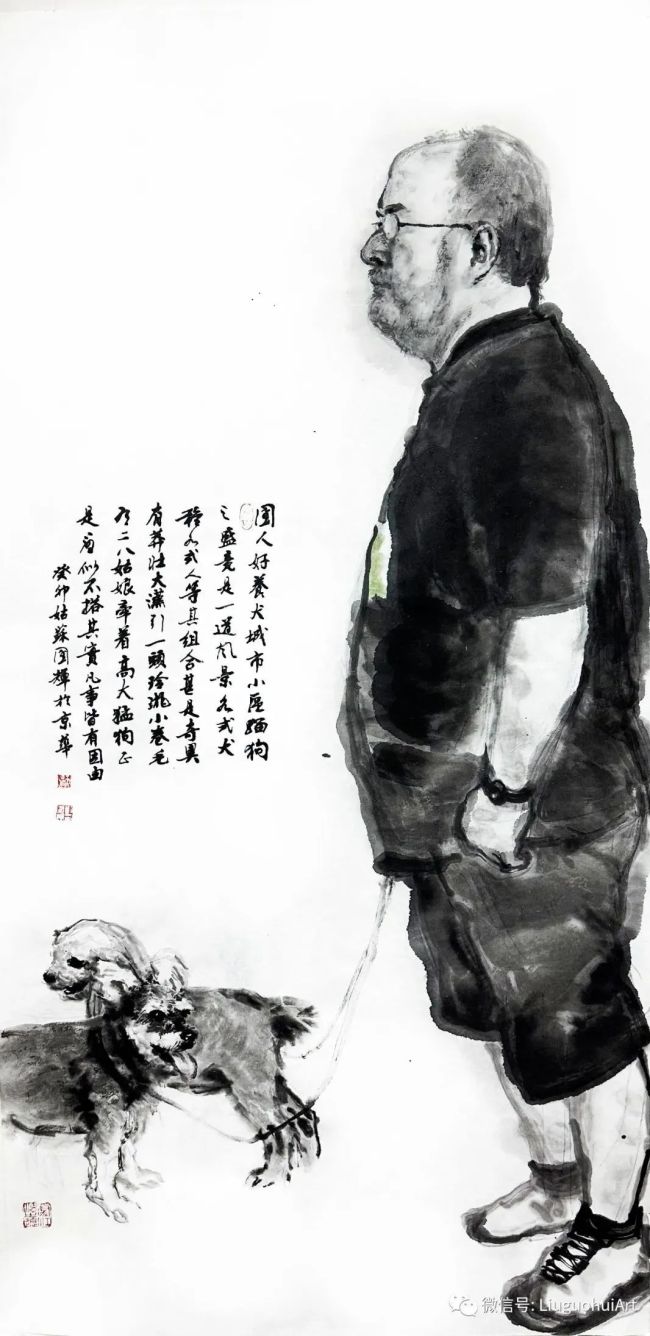 国人好养犬城市小区猫狗
之盛竟是一道风景各式犬
种各式人等其组合甚是奇异
有莽壮大汉引一头玲珑小卷毛
有二八姑娘牵着高大猛狗正
是看似不搭其实凡事皆有因由
癸卯姑苏国辉於京华
微信号: LiuguohuiArt